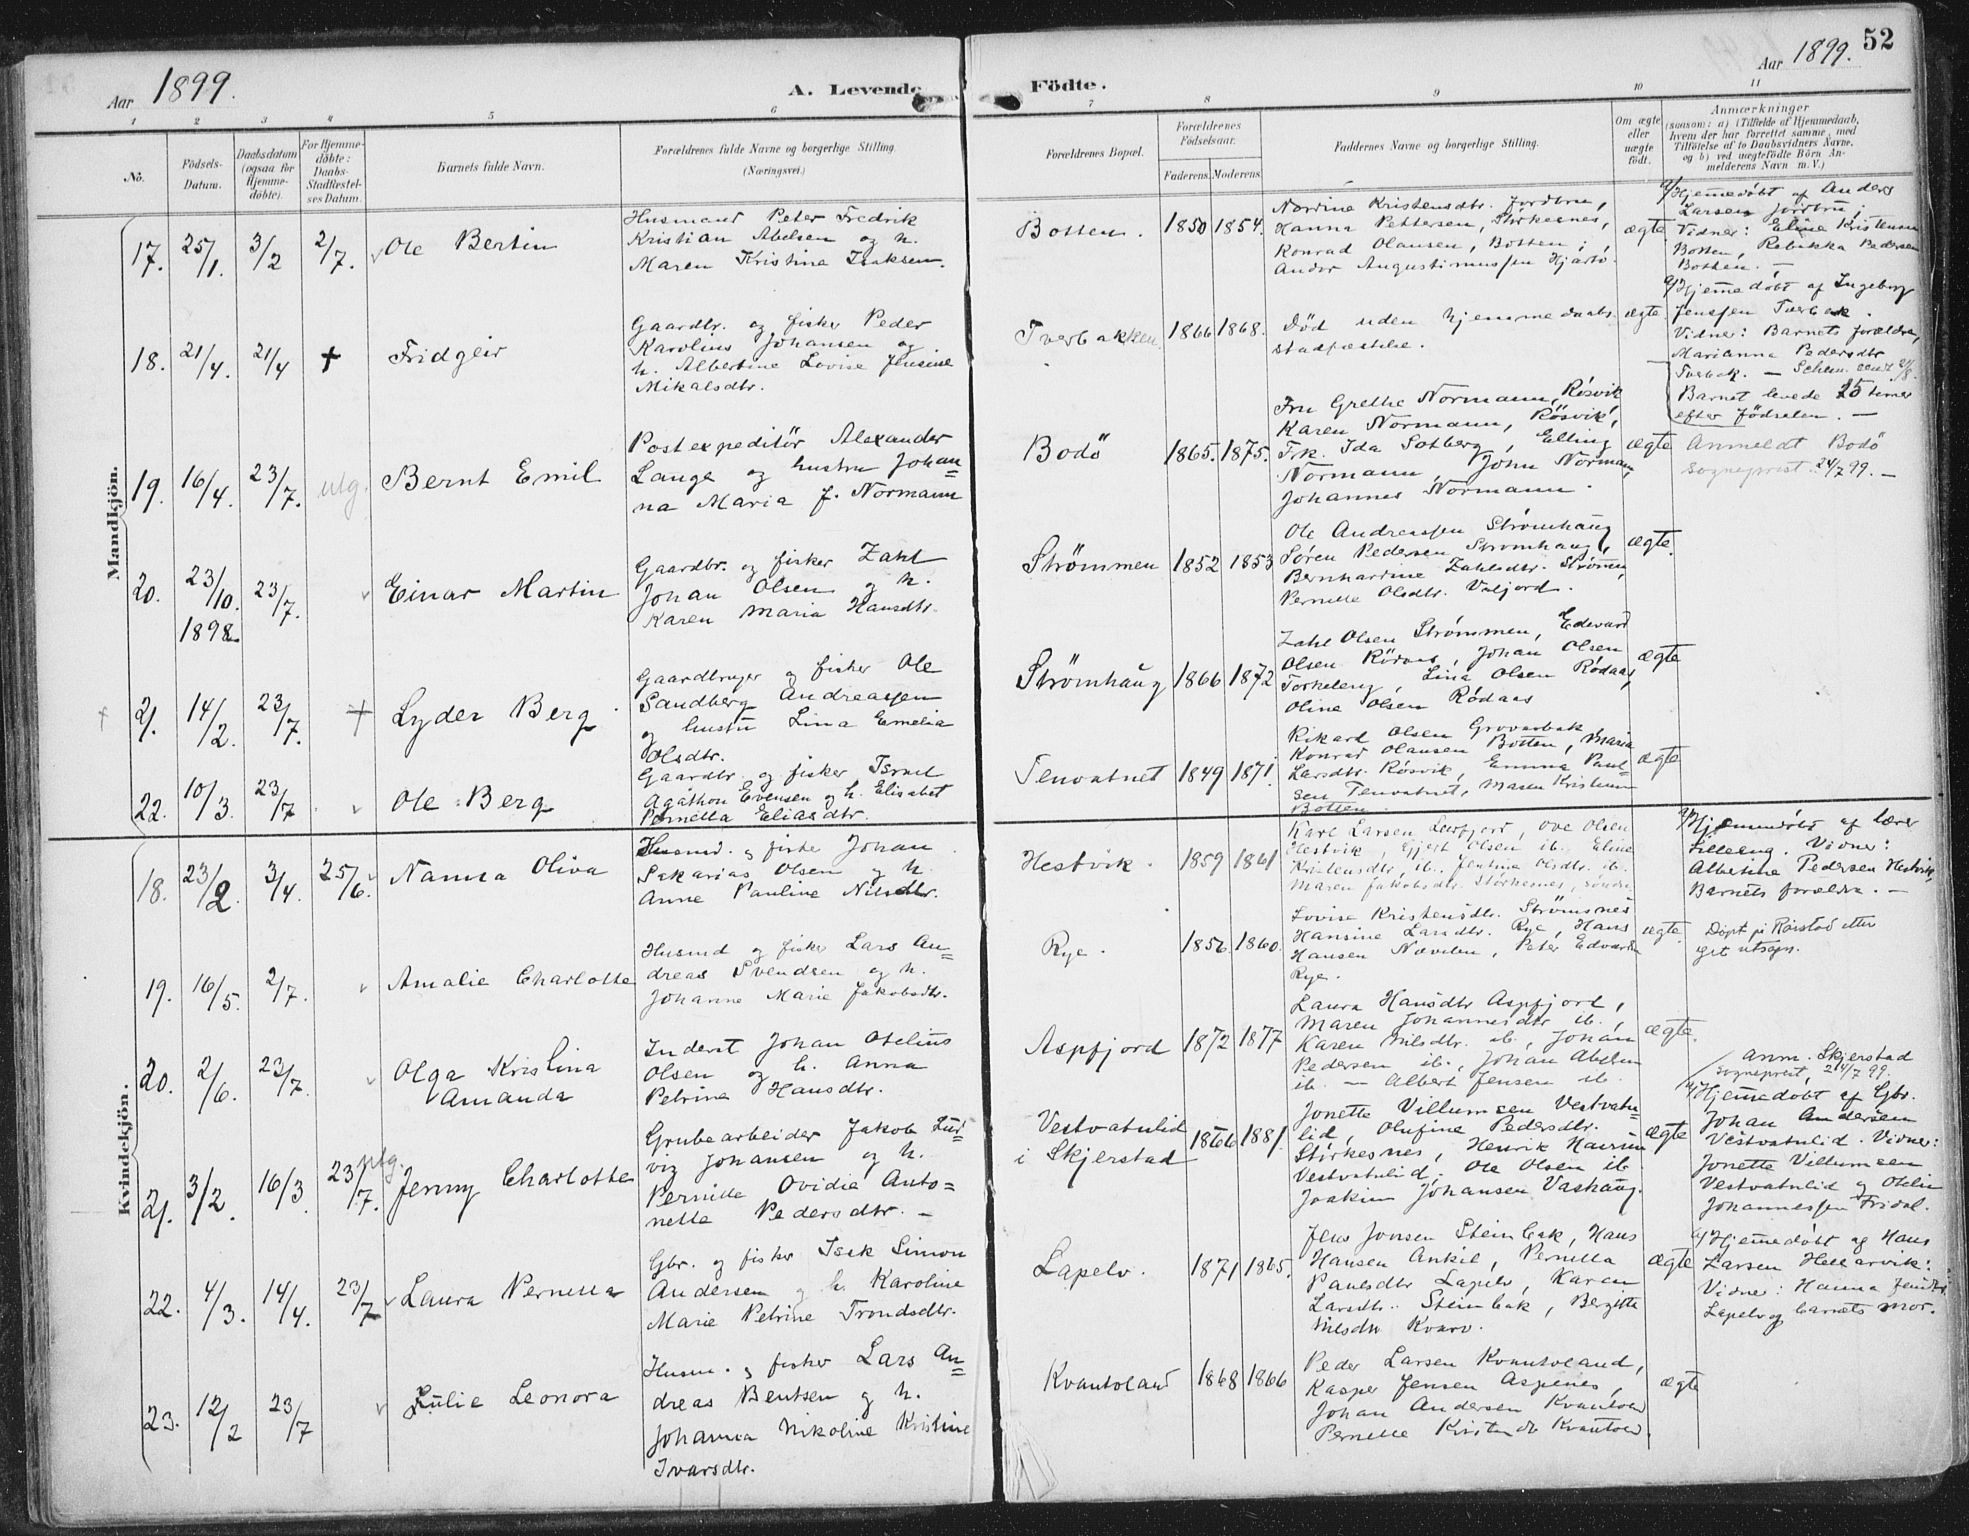 Aar 1899.
A. Levende
Födte.
Aar 1899.
52
1 2 3 4 5 6 7 8 9 10 11
No.
Födsels-Datum.
Daabsdatum (ogsaa for Hjemmedöbte).
For Hjemmedöbte: Daabs-Stadfestelses Datum.
Barnets fulde Navn.
Forældrenes fulde Navne og borgerlige Stilling.
(Næringsvei.)
Forældrenes Bopæl.
Forældrenes Födselsaar.
Faderens. Moderens.
Faddernes Navne og borgerlige Stilling.
Om ægte eller uægte födt.
Anmærkninger
(saasom: a) i Tilfælde af Hjemmedaab,
hvem der har forrettet samme, med
Tilföielse af to Daabsvidners Navne,
og b) ved uægtefödte Börn Anmelderens Navn m. V.)
Mandkjön.
17. 25/1. 3/2 2/7. Ole Bertin
Husmand Peter Fredrik
Kristian Abelsen og h.
Maren Kristine Isaksen.
Botten. 1850 1854.
Nordine Kristensdtr. Jordbru,
Hanna Pettersen, Störkesnes,
Konrad Olausen, Botten;
Andor Augustinussen Hjartö.
ægte
a/ Hjemedöbt af Anders
Larsen Jordbru;
Vidner: Eline Kristensen
Botten, Rebekka Pedersen
Botten. —
18. 21/4. 21/4 + Fridgeir
Gaardbr. og fisker Peder
Karolius Johansen og
h. Albertine Lovise Jensine
Mikalsdtr.
Tverbakken. 1866 1868.
Död uden hjemmedaabs
stadfæstelse.
ægte
a/ Hjemedöbt af Ingeborg
Jenssen Tverbak.
Vidner: Barnets forældre,
Marianna Pedersdtr
Tverbak. —
Barnet levede 25 timer
efter födselen. —
19. 16/4. 23/7. utg. Bernt Emil
Postexpeditör Alexander
Lange og hustru Johan=
na Maria f. Normann
Bodö 1865. 1875.
Fru Grethe Normann, Rösvik
Karen Normann, Rösvik,
Frk. Ida Sotberg, Elling
Normann, John Norman,
Johannes Normann.
ægte
Anmeldt Bodö
sogneprest 24/7 99. —
20. 23/10. 1898. 23/7. Einar Martin
Gaardbr. og fisker Zahl
Johan Olsen og h.
Karen Maria Hansdtr.
Strömmen 1852 1853
Ole Andreassen Strömhaug
Sören Pedersen Strömhaug,
Bernhardine Zahlsdtr. Strömen,
Pernille Olsdtr. Valjord.
ægte.
+ 21. 14/2. 23/7. + Lyder Berg
Gaardbruger og fisker Ole
Sandberg Andreassen
og hustru Lina Emelia
Olsdtr.
Strömhaug 1866 1872
Zahl Olsen Strömmen, Edvard
Olsen Rödaas, Johan Olsen
Torkeleng, Lina Olsen Rödaas,
Oline Olsen Rödaas
ægte
22. 10/3. 23/7 Ole Berg
Gaardbr. og fisker Israel
Agathon Evensen og h. Elisabet
Pernella Eliasdtr.
Tenvatnet 1849 1871.
Rikard Olsen Grovarbak
Konrad Olausen Botten, Maria
Larsdtr. Rösvik, Emma Paul-
sen Tenvatnet, Maren Kristensen
Botten.
ægte
Kvindekjön.
18. 23/2. 3/4. 25/6. Nanna Oliva
Husmd. og fisker Johan
Sakarias Olsen og h.
Anne Pauline Nilsdtr.
Hestvik. 1859 1861
Karl Larsen Leirfjord, Ove Olsen
Hestvik, Ejjert Olsen ib. Eline
Kristensdtr. ib., Jentine Olsdtr. ib.
Maren Jakobsdtr. Störkesnes, söndre
a/ Hjemmedöbt af lærer
Lilleeng. Vidner:
Albertine Pedersen Hestvik,
Barnets forældre. —
19. 16/5. 2/7. Amalie Charlotte
Husmd og fisker Lars An=
dreas Svendsen og h.
Johanne Marie Jakobsdtr.
Rye. 1856 1860.
Lovise Kristensdtr. Strömsnes
Hansine Larsdtr. Rye, Hans
Hansen Nævelen, Peter Edvardsen
Rye.
ægte.
Döpt på Rörstad etter
eget utsagn.
20. 2/6. 23/7. Olga Kristina
Amanda
Inderst Johan Otelius
Olsen og h. Anna
Petrine Hansdtr.
Aspfjord 1872 1877
Laura Hansdtr Aspfjord,
Maren Johannesdtr ib.,
Karen Nilsdtr. ib., Johan
Pedersen ib., Johan Abelsen
ib. — Albert Jensen ib.
ægte.
21. 3/2. 16/3. 23/7. utg. Jenny Charlotte
Grubearbeider Jakob Lud=
vig Johansen og h.
Pernille Ovidie Anto=
nette Pedersdtr. —
Vestvatnlid
i Skjerstad
1866 1881.
Jonette Villumsen Vestvatn=
lid, Olufine Pedersdtr.
Störkesnes, Henrik Hansen
Vestvatnlid, Ole Olsen ib.
Joakim Johansen Vashaug.
ægte
Anm. Skjerstad
sogneprest, 24/7 99.
a/ Hjemedöbt af Gbr.
Johan Andersen
Vestvatnlid. Vidner:
Jonette Villumsen
Vestvatnlid og Otelie
Johannessen Fridal.
22. 4/3. 14/4. 23/7 Laura Pernella
Gbr. og fisker Isak Simon
Andersen og h. Karoline
Marie Petrine Trondsdtr.
Lapelv. 1871 1865.
Jens Jonsen Steinbak, Hans
Hansen Ankil, Pernella
Paulsdtr Lapelv, Karen
Larsdtr. Steinbak, Bergitte
Nilsdtr Kvarv.
ægte
a/ Hjemedöbt af Hans
Larsen Hellarvik:
Vidner: Hanna Jensdtr
Lapelv og barnets mor.
23. 12/2 23/7 Julie Leonora
Husm. og fisker Lars An=
dreas Bentsen og h.
Johanna Nikoline Kristine
Ivarsdtr.
Kvantoland 1868 1866
Peder Larsen Kvantoland,
Kasper Jensen Aspenes,
Johan Andersen Kvantold
Pernelle Kristendtr Kvantold.
ægte